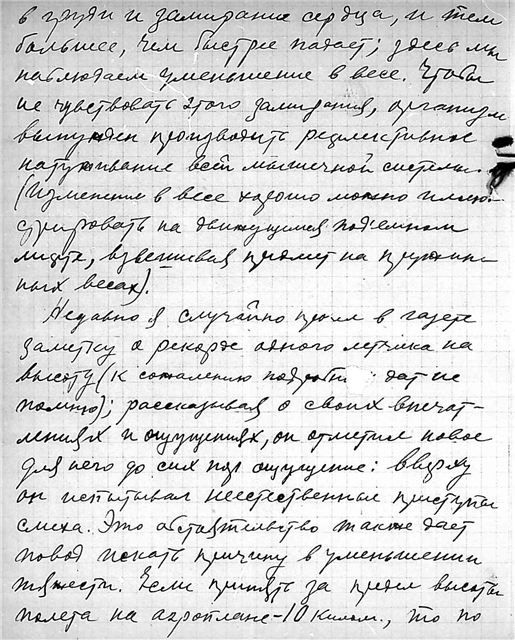 в груди и замирание сердца, и тем
большее, чем быстрее падает; здесь мы
наблюдаем уменьшение в весе. Чтобы
не чувствовать этого замирания, организм
вынужден производить рефлективное
натуживание всей мышечной системы.
(Изменение в весе хорошо можно иллю-
стрировать на движущимся подъемном
лифте, взвешивая предмет на пружин-
ных весах).
Недавно я случайно прочел в газете
заметку о рекорде одного летчика на
высоту (к сожалению дат не
помню); рассказывая о своих впечат-
лениях и ощущениях, он отметил новое
для него до сих пор ощущение: вверху
он испытывал неестественные приступы
смеха. Это обстоятельство также дает
повод искать причину в уменьшении
тяжести. Если принять за предел высоты
полета на аэроплане - 10 килом., то по